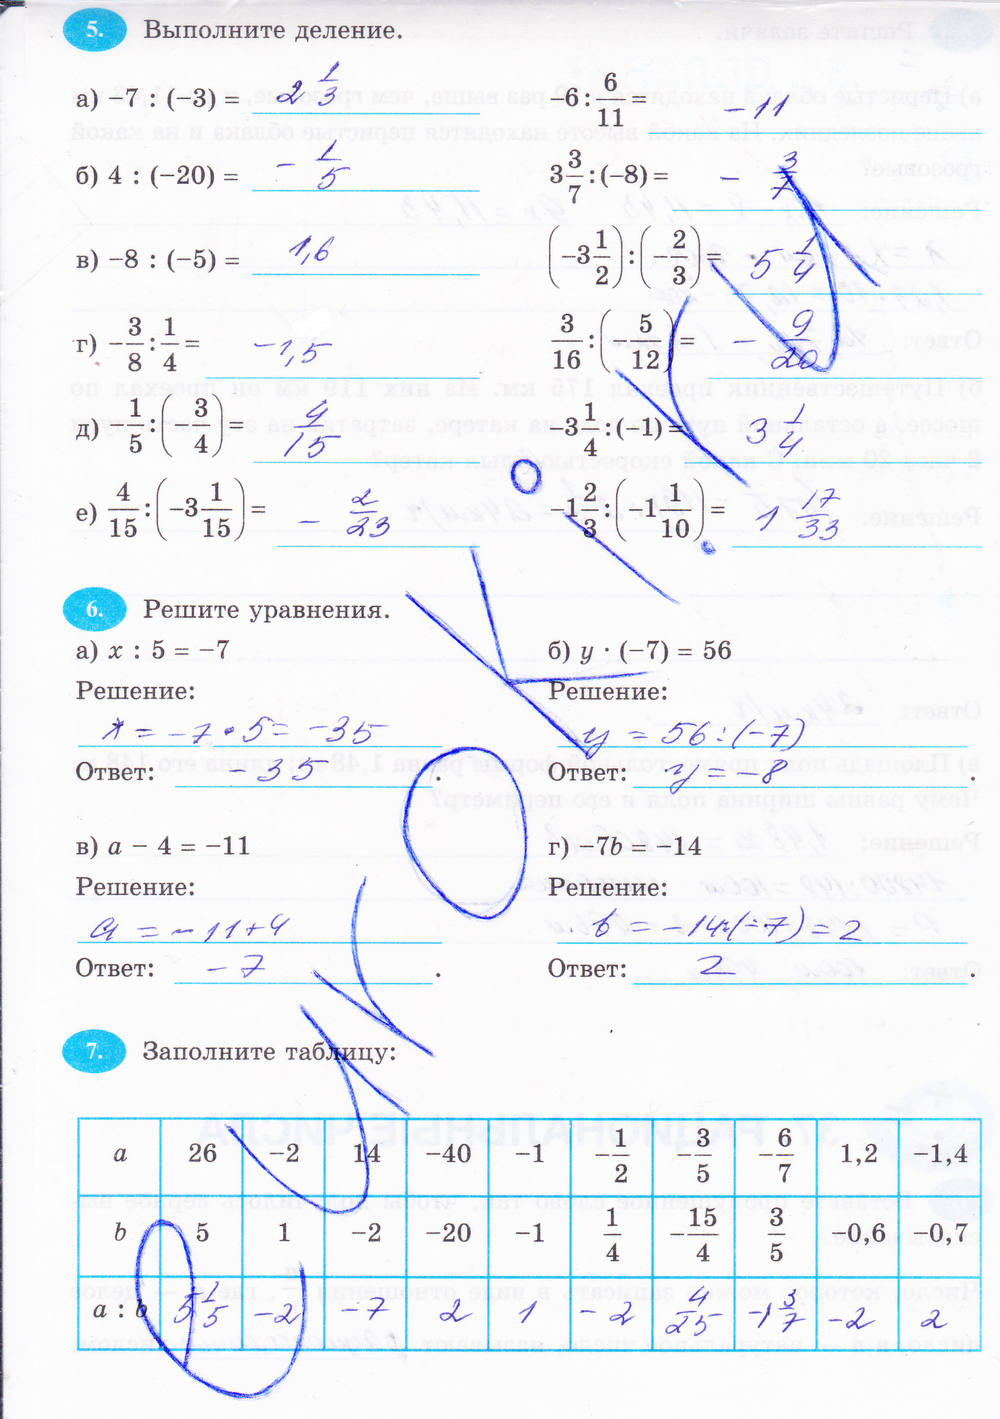 5. Выполните деление.
а) −7 : (−3) = 2 1/3
−6 : 6/11 = −11
б) 4 : (−20) = −1/5
3 3/7 : (−8) = −3/7
в) −8 : (−5) = 1,6
(−3 1/2) : (−2/3) = 5 1/4
г) −3/8 : 1/4 = −1,5
3/16 : (−5/12) = −9/20
д) 1/5 : (−3/4) = 4/15
−3 1/4 : (−1) = 3 1/4
е) 4/15 : (−3 1/15) = −2/23
−1 2/3 : (−1 1/10) = 1 17/33
6. Решите уравнения.
а) x : 5 = −7
Решение:
x = −7 • 5 = −35
Ответ: −35.
б) y · (−7) = 56
Решение:
y = 56 : (−7)
Ответ: y = −8.
в) a − 4 = −11
Решение:
a = −11+4
Ответ: −7.
г) −7b = −14
Решение:
b = −14:(−7) = 2
Ответ: 2.
7. Заполните таблицу:
a 26 −2 14 −40 −1 −1/2 −3/5 −6/7 1,2 −1,4
b 5 1 −2 −20 −1 1/4 −15/4 3/5 −0,6 −0,7
a : b 5 1/5 −2 −7 2 1 −2 4/25 −1 3/7 −2 2